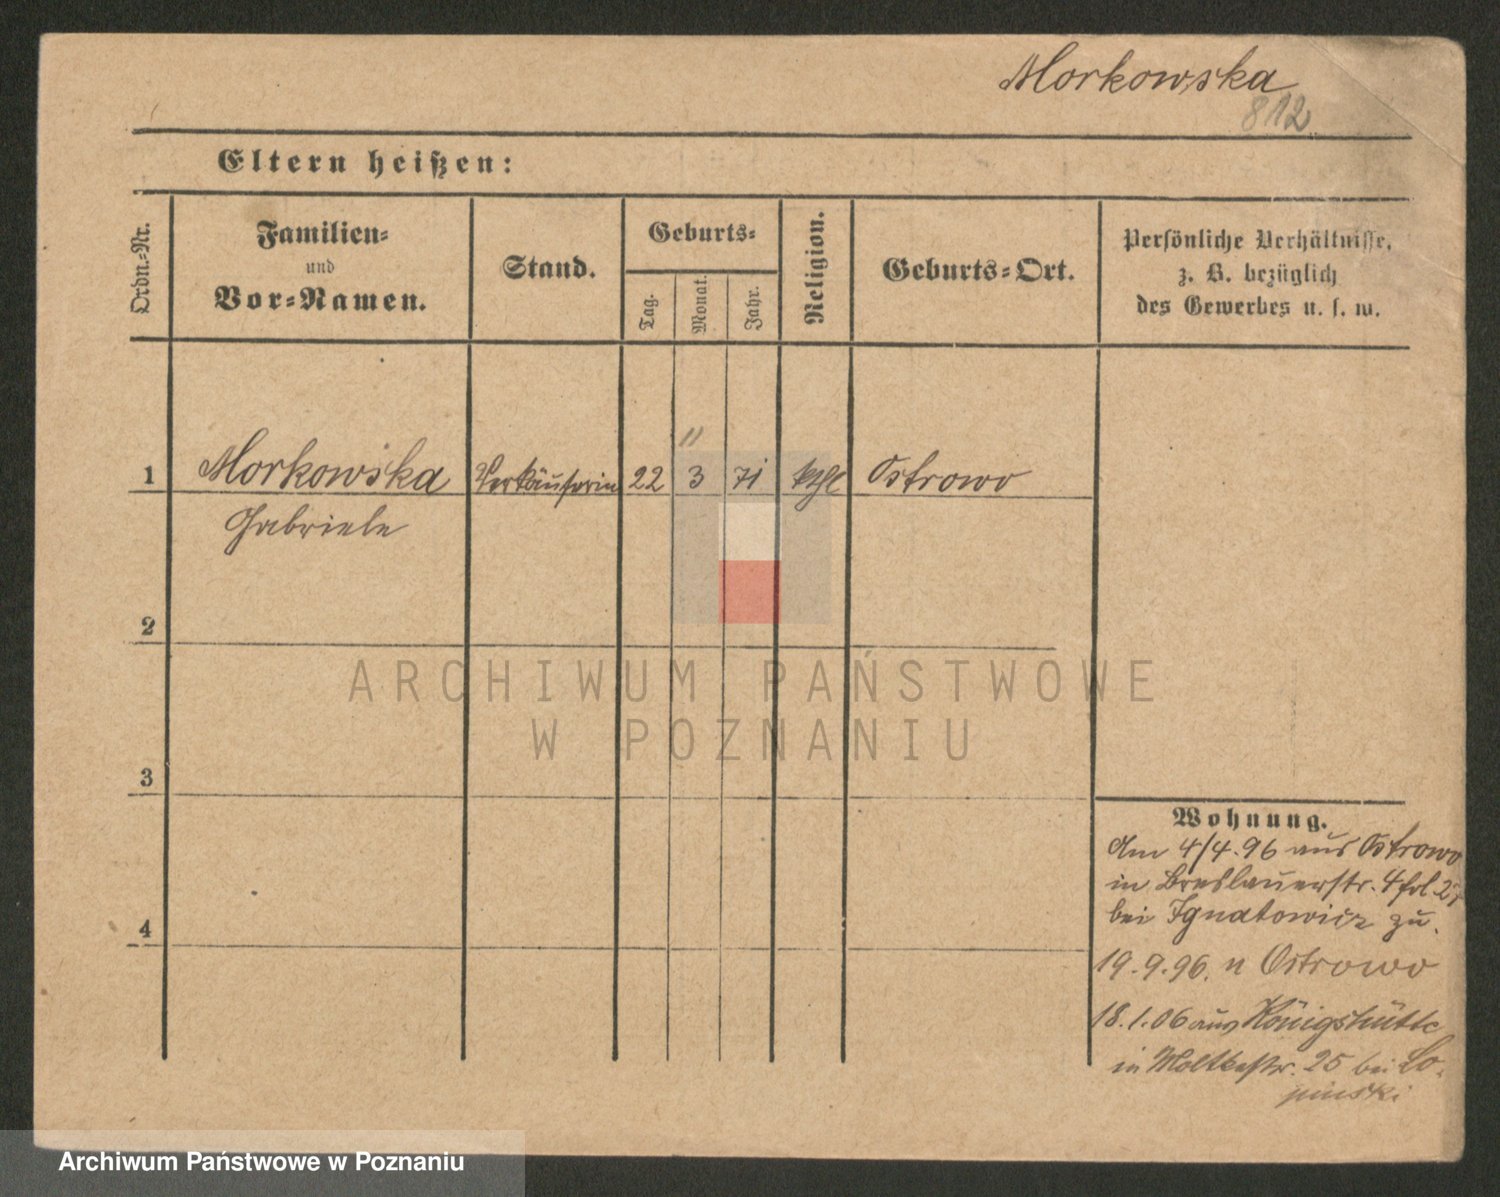 Morkowska
812
Eltern heißen:
Ordn.-Nr.
Familien-
und
Vor-Namen.
Stand.
Geburts-
Tag.
Monat.
Jahr.
Religion.
Geburts-Ort.
Persönliche Verhältnisse,
z. B. bezüglich
des Gewerbes u. s. w.
11
1 Morkowska Verkäuferin 22 3 71 kthl Ostrowo
Gabriele
2
3
4
ARCHIWUM PAŃSTWOWE
W POZNANIU
Wohnung.
Am 4/4.96 aus Ostrowo
in Breslauerstr. 4 fol 27
bei Ignatowicz zu.
19.9.96. n Ostrowo
18.1.06 aus Königshütte
in Moltkestr. 25 bei Lo-
pinski
Archiwum Państwowe w Poznaniu